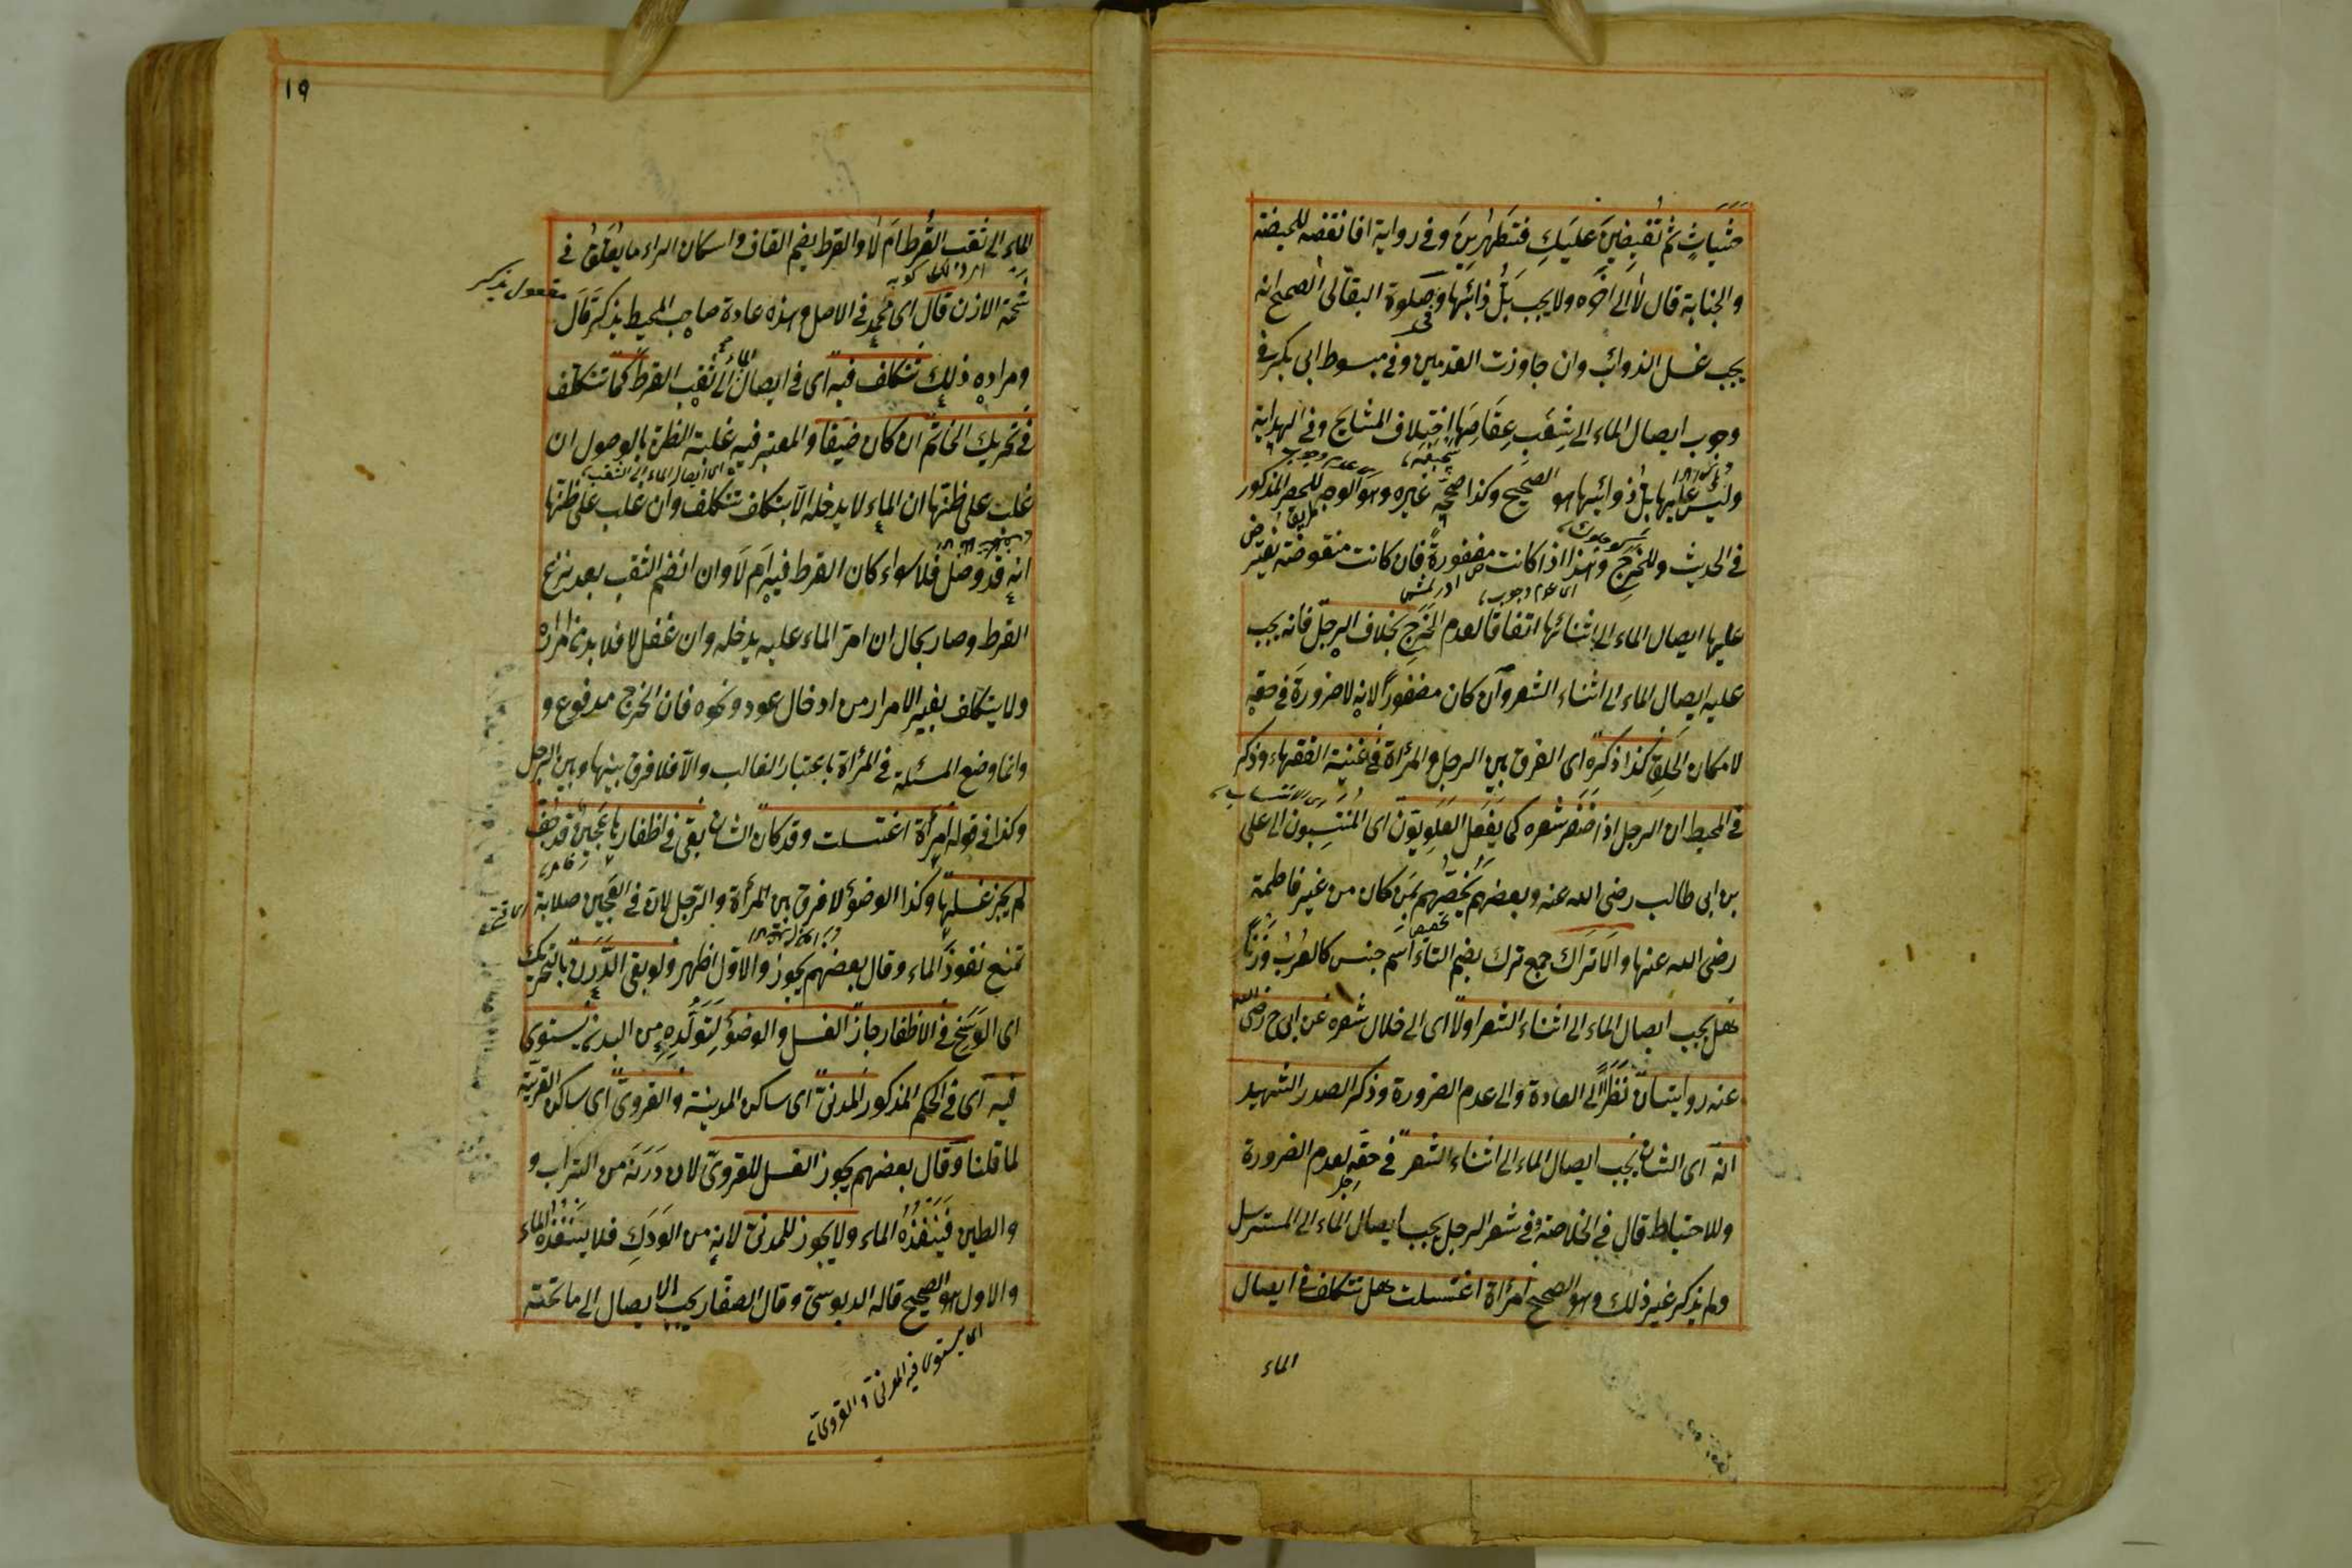 حثيات ثم تفيضين عليك فتطهرين وفي رواية افانقضه للحيضة
والجنابة قال لا الى اخره ولا يجب بل ذائبها وفي صلوة البقالى الصحيح انه
يجب غسل الذوائب وان جاوزت القدمين وفي مبسوط ابى بكر في
وجوب ايصال الماء الى شعب عقاصها اختلاف المشايخ وفي الهداية
وليس عليها بل ذوائبها هو الصحيح وكذا صححه غيره وهو الوجه للحصر المذكور
في الحديث وللحرج وهذا اذا كانت مضفورة فان كانت منقوضة يفترض
عليها ايصال الماء الى اثنائها اتفاقا لعدم الحرج بخلاف الرجل فانه يجب
عليه ايصال الماء الى اثناء الشعر وان كان مضفورا لانه لا ضرورة في حقه
لامكان الحلق كذا ذكره اى الفرق بين الرجل والمرأة في غنية الفقهاء وذكر
في المحيط ان الرجل اذا ضفر شعره كما يفعل العلويون اى المنتسبون الى على
بن ابى طالب رضى الله عنه وبعضهم يخصهم بمن كان من غير فاطمة
رضى الله عنها والاتراك جمع ترك بضم التاء اسم جنس كالعرب وزنا
هل يجب ايصال الماء الى اثناء الشعر اولا اى الى خلال شعره عن ابى ح رضى الله
عنه روايتان نظرا الى العادة والى عدم الضرورة وذكر الصدر الشهيد
انه اى الشان يجب ايصال الماء الى اثناء الشعر في حقه لعدم الضرورة
وللاحتياط قال في الخلاصة وفي شعر الرجل يجب ايصال الماء الى المسترسل
ولم يذكر غير ذلك وهو الصحيح امرأة اغتسلت هل تتكلف في ايصال
الماء
١٩
الماء الى ثقب القرط ام لا والقرط بضم القاف واسكان الراء ما يعلق في
شحمة الاذن قال اى محمد في الاصل وهذه عادة صاحب المحيط يذكر قال
مفعول يذكر
ومراده ذلك تتكلف فيه اى في ايصال الماء الى ثقب القرط كما تتكلف
في تحريك الخاتم ان كان ضيقا والمعتبر فيه غلبة الظن بالوصول ان
اى ايصال الماء الى الثقب
غلب على ظنها ان الماء لا يدخله الا بتكلف تتكلف وان غلب على ظنها
انه قد وصل فلا سواء كان القرط فيه ام لا وان انضم الثقب بعد نزع
القرط وصار بحال ان امر الماء عليه يدخله وان غفل لا فلا بد من امراره
ولا يتكلف بغير الامرار من ادخال عود ونحوه فان الحرج مدفوع و
وانما وضع المسئلة في المرأة باعتبار الغالب والا فلا فرق بينها وبين الرجل
وكذا في قوله امرأة اغتسلت وقد كان الشان بقى في اظفارها عجين قد جف
لم يجز غسلها وكذا الوضوء لا فرق بين المرأة والرجل لان في العجين صلابة
تمنع نفوذ الماء وقال بعضهم يجوز والاول اظهر ولو بقى الدرن بالتحريك
اى الوسخ في الاظفار جاز الغسل والوضوء لتولده من البدن يستوى
فيه اى في الحكم المذكور المدنى اى ساكن المدينة والقروى اى ساكن القرية
لما قلنا وقال بعضهم يجوز الغسل للقروى لان درنه من التراب و
والطين فينفذه الماء ولا يجوز للمدنى لانه من الودك فلا ينفذه الماء
والاول هو الصحيح قاله الدبوسى وقال الصفار يجب الايصال الى ما تحته
اى يستوى فيه المدنى والقروى